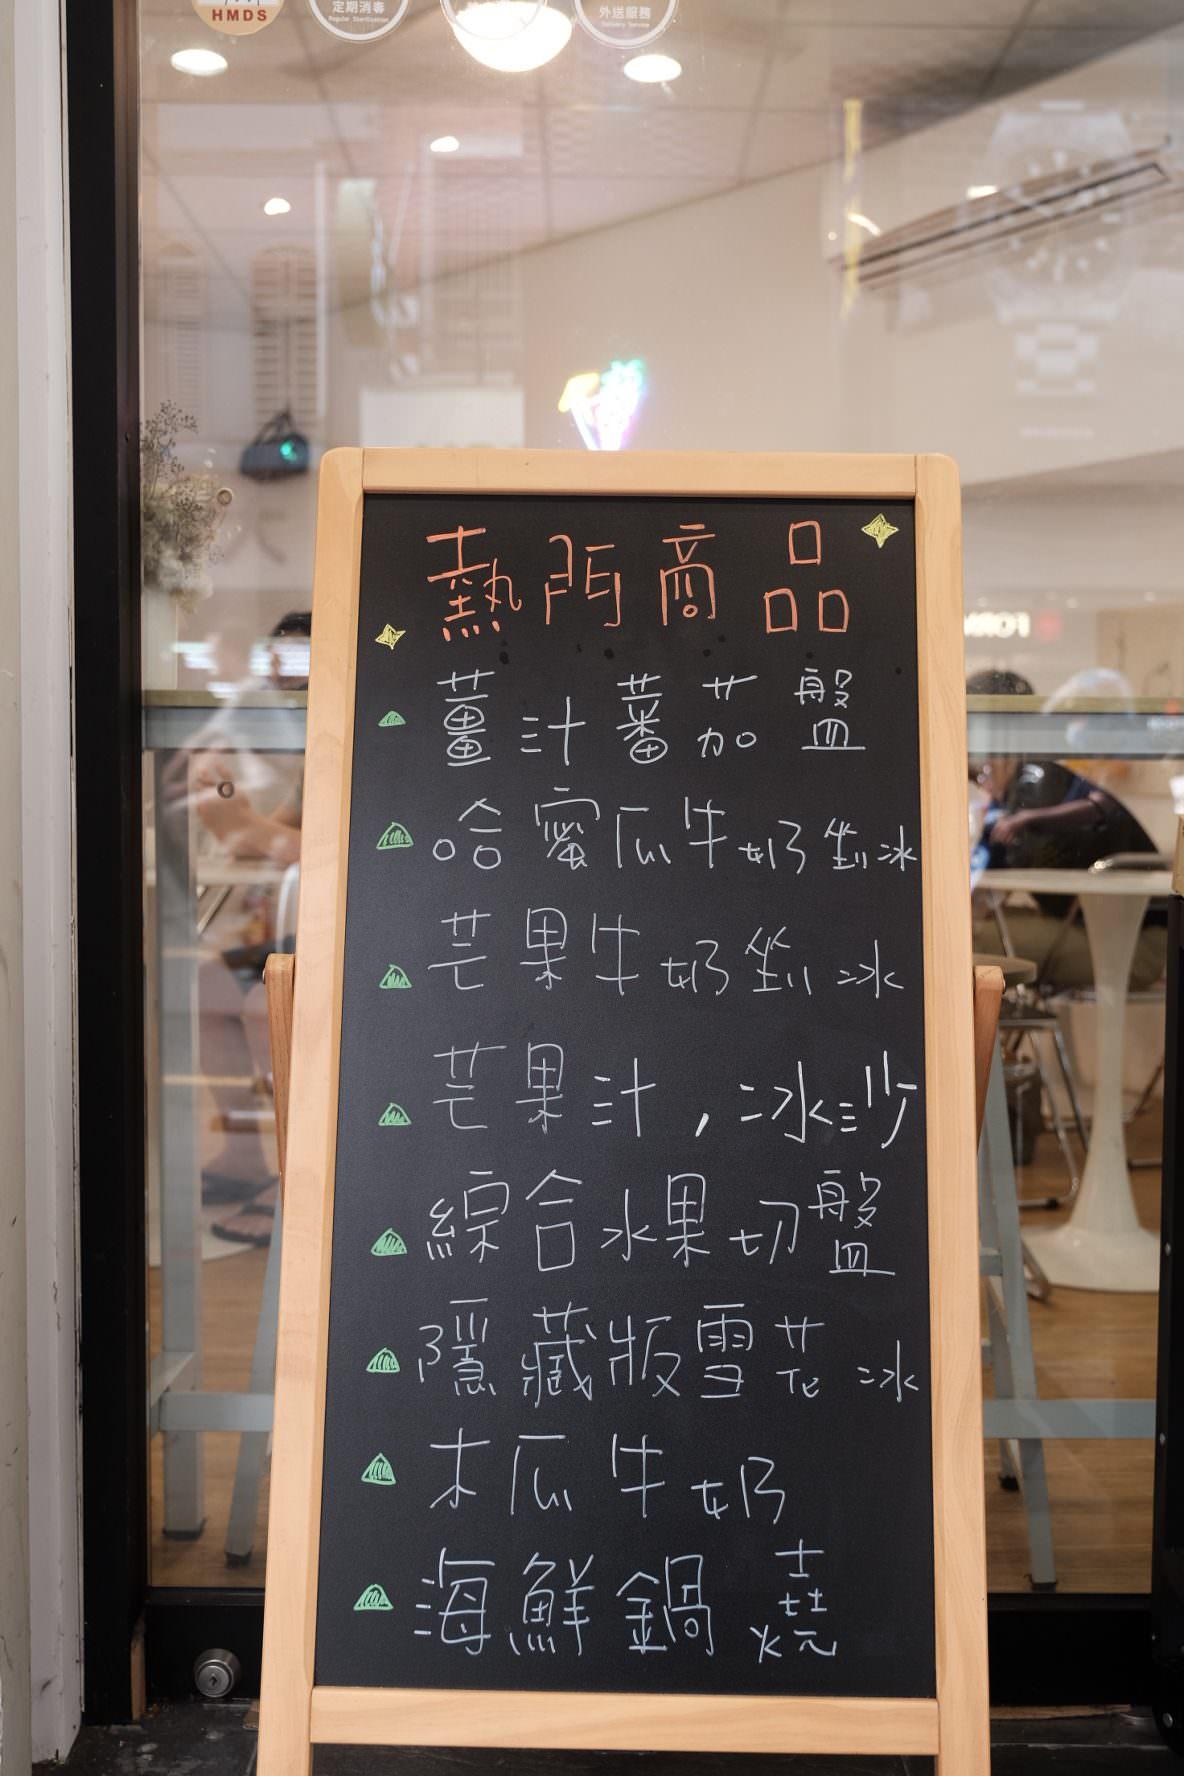 HMDS
定期消毒
Regular Sterilization
外送服務
Delivery Service
熱門商品
薑汁蕃茄盤
哈蜜瓜牛奶剉冰
芒果牛奶剉冰
芒果汁，冰沙
綜合水果切盤
隱藏版雪花冰
木瓜牛奶
海鮮鍋燒